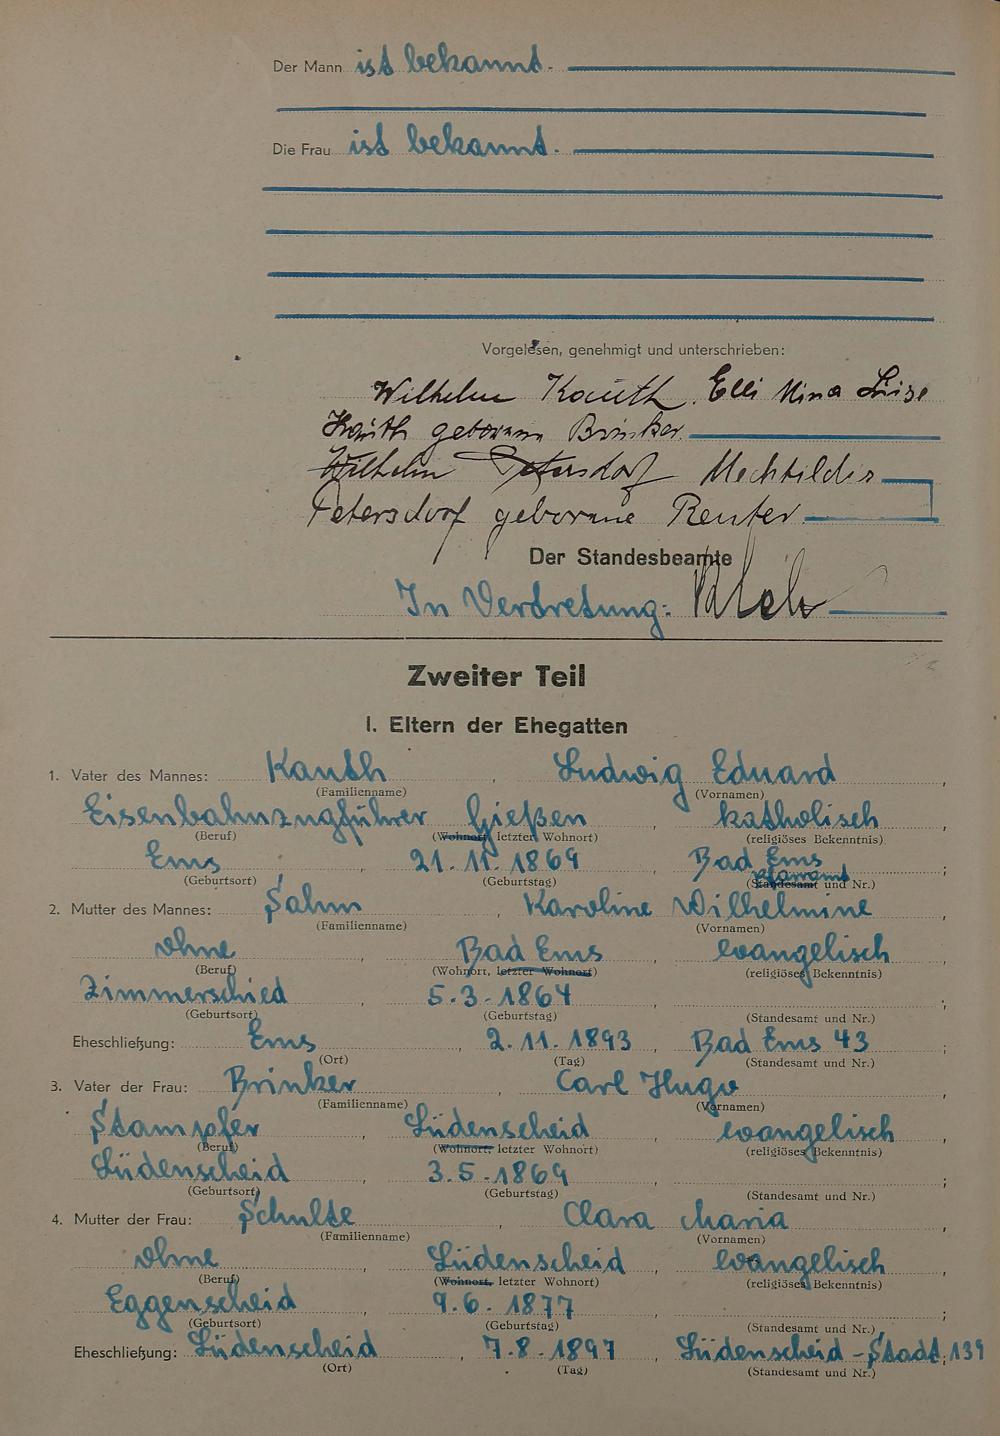 Der Mann ist bekannt.
Die Frau ist bekannt.
Vorgelesen, genehmigt und unterschrieben:
Wilhelm Kauth. Elli Mina Luise
Kauth geborene Brinker
Wilhelm Petersdorf Mechtildis
Petersdorf geborene Reuter
Der Standesbeamte
In Vertretung:
Zweiter Teil
I. Eltern der Ehegatten
1. Vater des Mannes: Kauth, Ludwig Eduard,
(Familienname) (Vornamen)
Eisenbahnzugführer Gießen, katholisch
(Beruf) (Wohnort, letzter Wohnort) (religiöses Bekenntnis)
Ems, 21.11.1869, Bad Ems;
(Geburtsort) (Geburtstag) Pfarramt (Standesamt und Nr.)
2. Mutter des Mannes: Sahm, Karoline Wilhelmine,
(Familienname) (Vornamen)
ohne, Bad Ems, evangelisch,
(Beruf) (Wohnort, letzter Wohnort) (religiöses Bekenntnis)
Zimmerschied, 5.3.1864,;
(Geburtsort) (Geburtstag) (Standesamt und Nr.)
Eheschließung: Ems, 2.11.1893, Bad Ems 43;
(Ort) (Tag) (Standesamt und Nr.)
3. Vater der Frau: Brinker, Carl Hugo,
(Familienname) (Vornamen)
Stampfer, Lüdenscheid, evangelisch,
(Beruf) (Wohnort, letzter Wohnort) (religiöses Bekenntnis)
Lüdenscheid, 3.5.1869,;
(Geburtsort) (Geburtstag) (Standesamt und Nr.)
4. Mutter der Frau: Schulte, Clara Maria,
(Familienname) (Vornamen)
ohne, Lüdenscheid, evangelisch,
(Beruf) (Wohnort, letzter Wohnort) (religiöses Bekenntnis)
Eggenscheid, 9.6.1877,;
(Geburtsort) (Geburtstag) (Standesamt und Nr.)
Eheschließung: Lüdenscheid, 7.8.1897, Lüdenscheid-Stadt; 139
(Ort) (Tag) (Standesamt und Nr.)